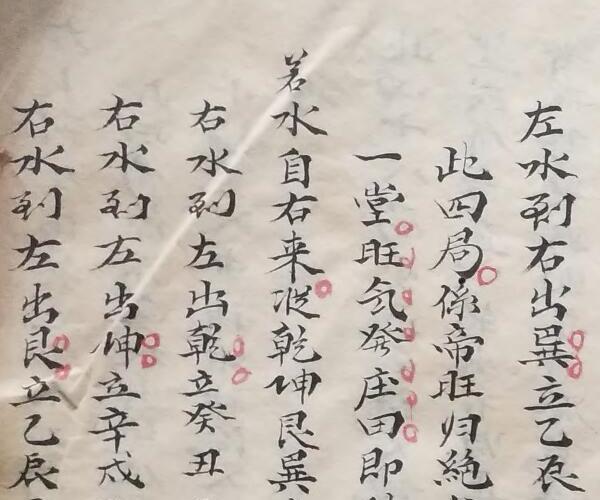 左水到右出巽立乙辰
此四局係帝旺归絶
一堂旺気發庄田即
若水自右来從乾坤艮巽
右水到左出乾立癸丑
右水到左出坤立辛戍
右水到左出艮立乙辰